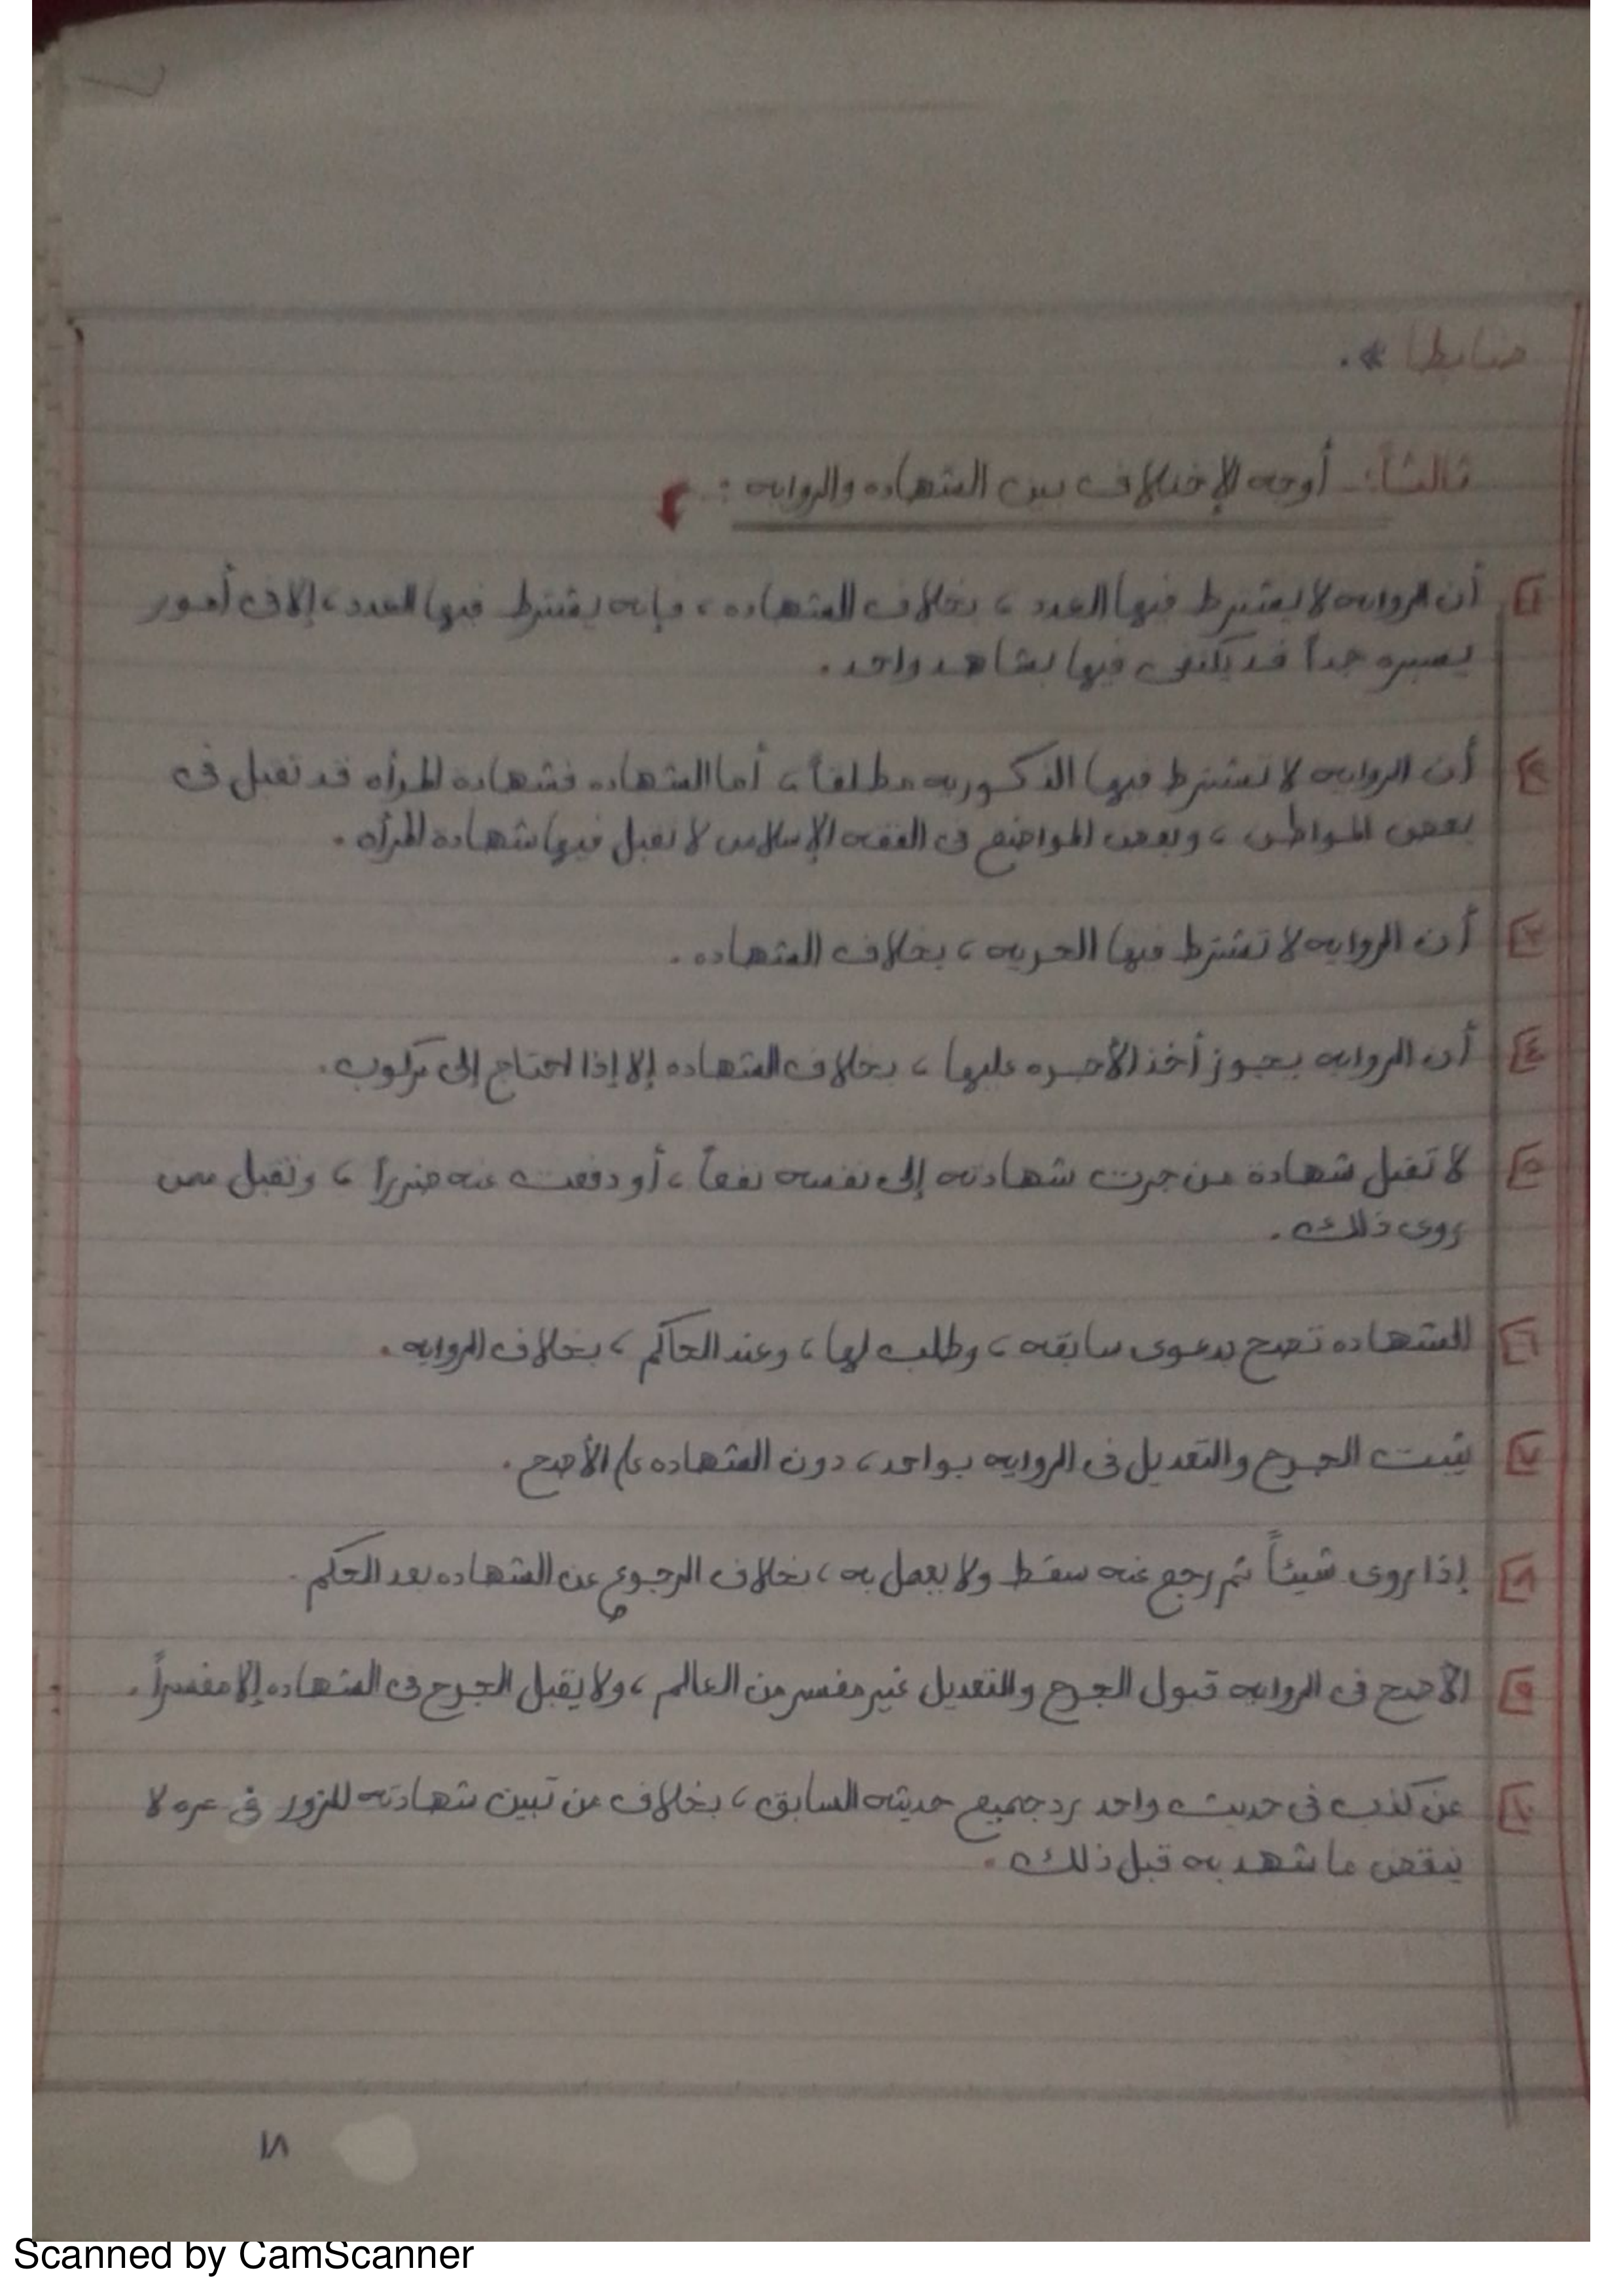 ضابطا *.
ثالثاً:- أوجه الإختلاف بين الشهاده والروايه :-
١ أن الروايه لا يشترط فيها العدد ، بخلاف الشهاده ، فإنه يشترط فيها العدد ، إلا فى أمور
يسيره جداً قد يكتفى فيها بشاهد واحد .
٢ أن الروايه لا تشترط فيها الذكوريه مطلقاً ، أما الشهاده فشهادة المرأه قد تقبل فى
بعض المواطن ، وبعض المواضع فى الفقه الإسلامى لا تقبل فيها شهادة المرأه .
٣ أن الروايه لا تشترط فيها الحريه ، بخلاف الشهاده .
٤ أن الروايه يجوز أخذ الأجره عليها ، بخلاف الشهاده إلا إذا احتاج إلى مركوب .
٥ لا تقبل شهادة من جرت شهادته إلى نفسه نفعاً ، أو دفعت عنه ضرراً ، وتقبل ممن
روى ذلك .
٦ الشهاده تصح بدعوى سابقه ، وطلب لها ، وعند الحاكم ، بخلاف الروايه .
٧ يثبت الجرح والتعديل فى الروايه بواحد ، دون الشهاده على الأصح .
٨ إذا روى شيئاً ثم رجع عنه سقط ولا يعمل به ، بخلاف الرجوع عن الشهاده بعد الحكم .
٩ الأصح فى الروايه قبول الجرح والتعديل غير مفسر من العالم ، ولا يقبل الجرح فى الشهاده إلا مفسراً .
١٠ من كذب فى حديث واحد رد جميع حديثه السابق ، بخلاف من تبين شهادته للزور فى مره لا
ينقض ما شهد به قبل ذلك .
١٨
Scanned by CamScanner